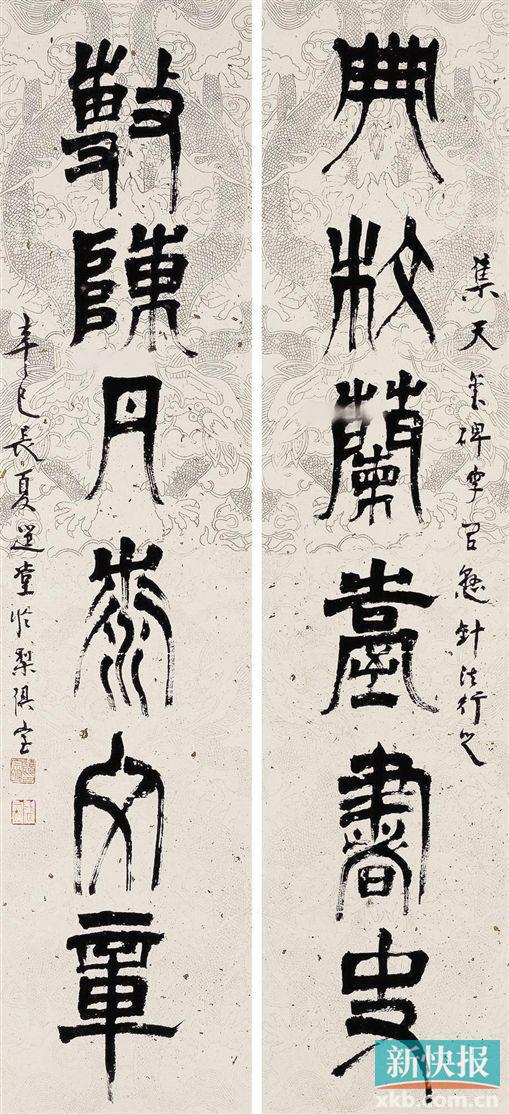 典校蘭臺書史
集天發碑字以懸針法行之
敷陳丹黍文章
辛巳長夏選堂於梨俱室
新快报
xkb.com.cn